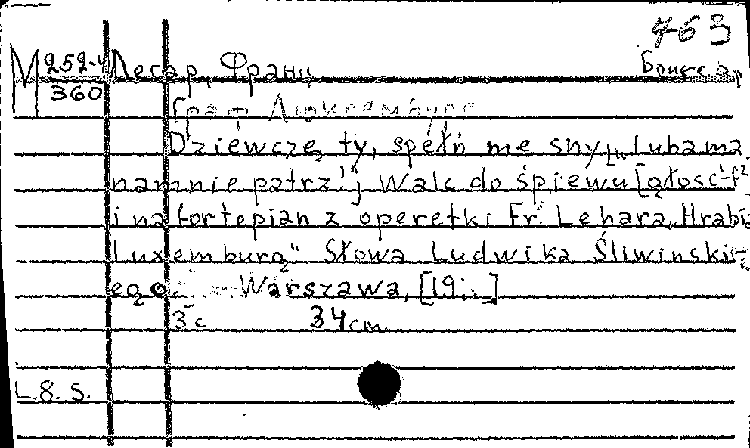 463
М 252-4 Легар, Франц
360
Граф Люксембург
Dziewczę ty, spełń me sny, luba ma
na mnie patrz!; Walc do śpiewu [głos
i na fortepian z operetki Fr. Lehara „Hrabia
Luxemburg" Słowa Ludwika Śliwinski-
ego Warszawa, [19..]
3 с 34 cm
L. 8. S.